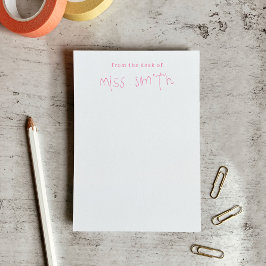 From the desk of
miss smith